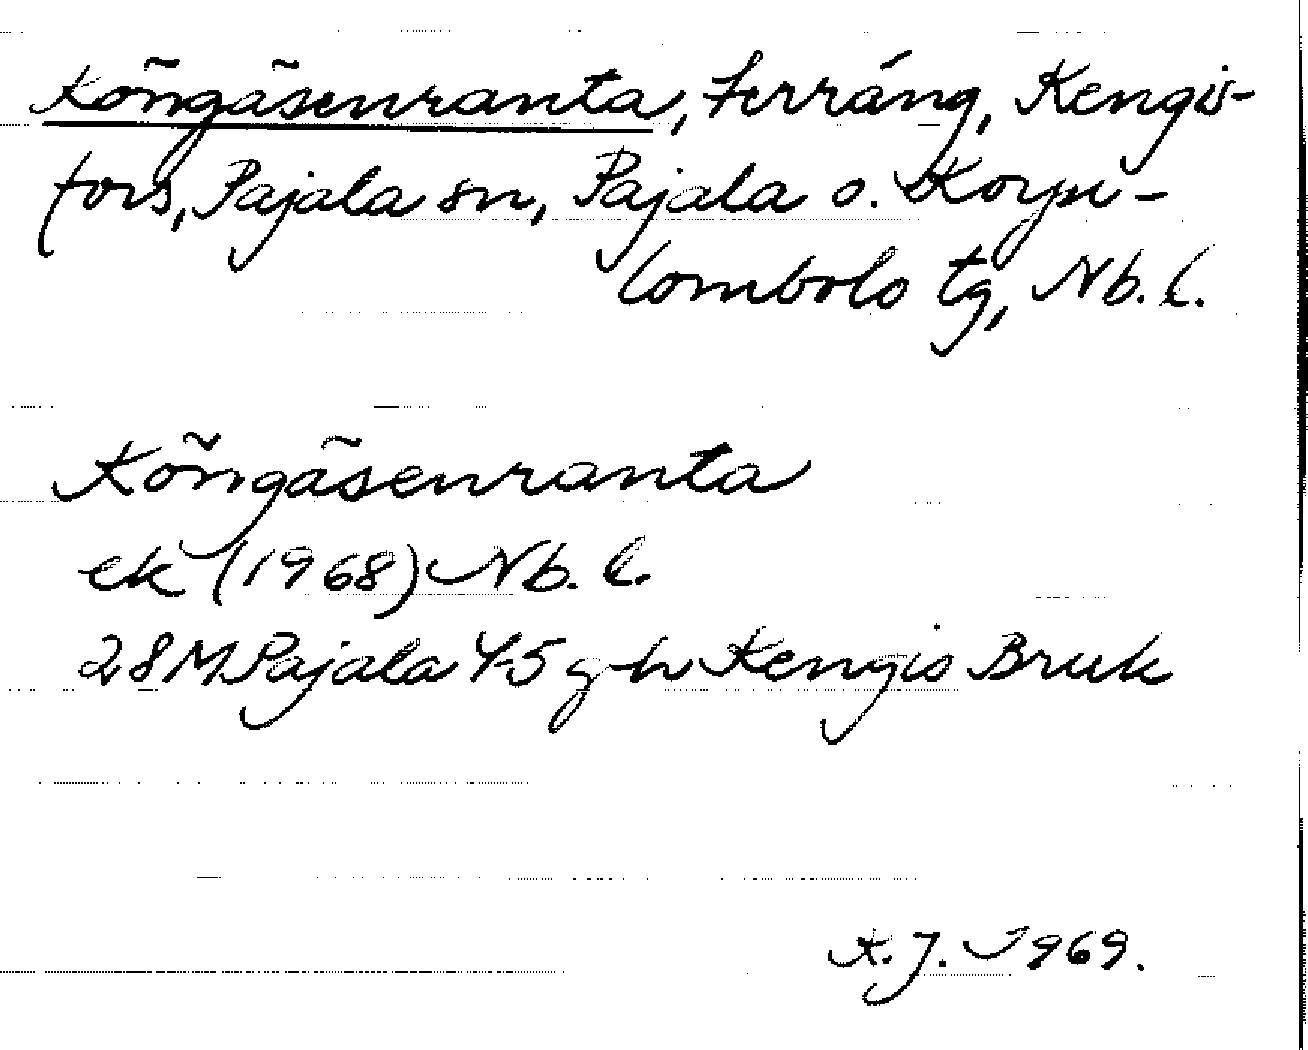 Köngäsenranta, terräng, Kengis-
fors, Pajala sn, Pajala o. Korpi-
lombolo tg, Nb. l.
Köngäsenranta
ek (1968) Nb. l.
28M Pajala 4-5 g-h Kengis Bruk
K.J. 1969.